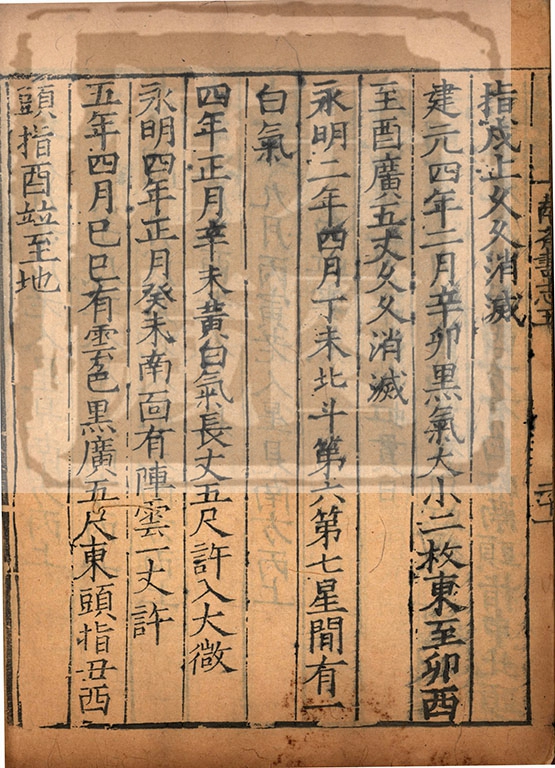 指戍上久久消滅
建元四年二月辛卯黑氣大小二枚東至卯西
至酉廣五丈久久消滅
永明二年四月丁未北斗第六第七星閒有一
白氣
四年正月辛未黃白氣長丈五尺許入大微
永明四年正月癸未南面有陣雲一丈許
五年四月巳巳有雲色黑廣五尺東頭指丑西
頭指酉竝至地